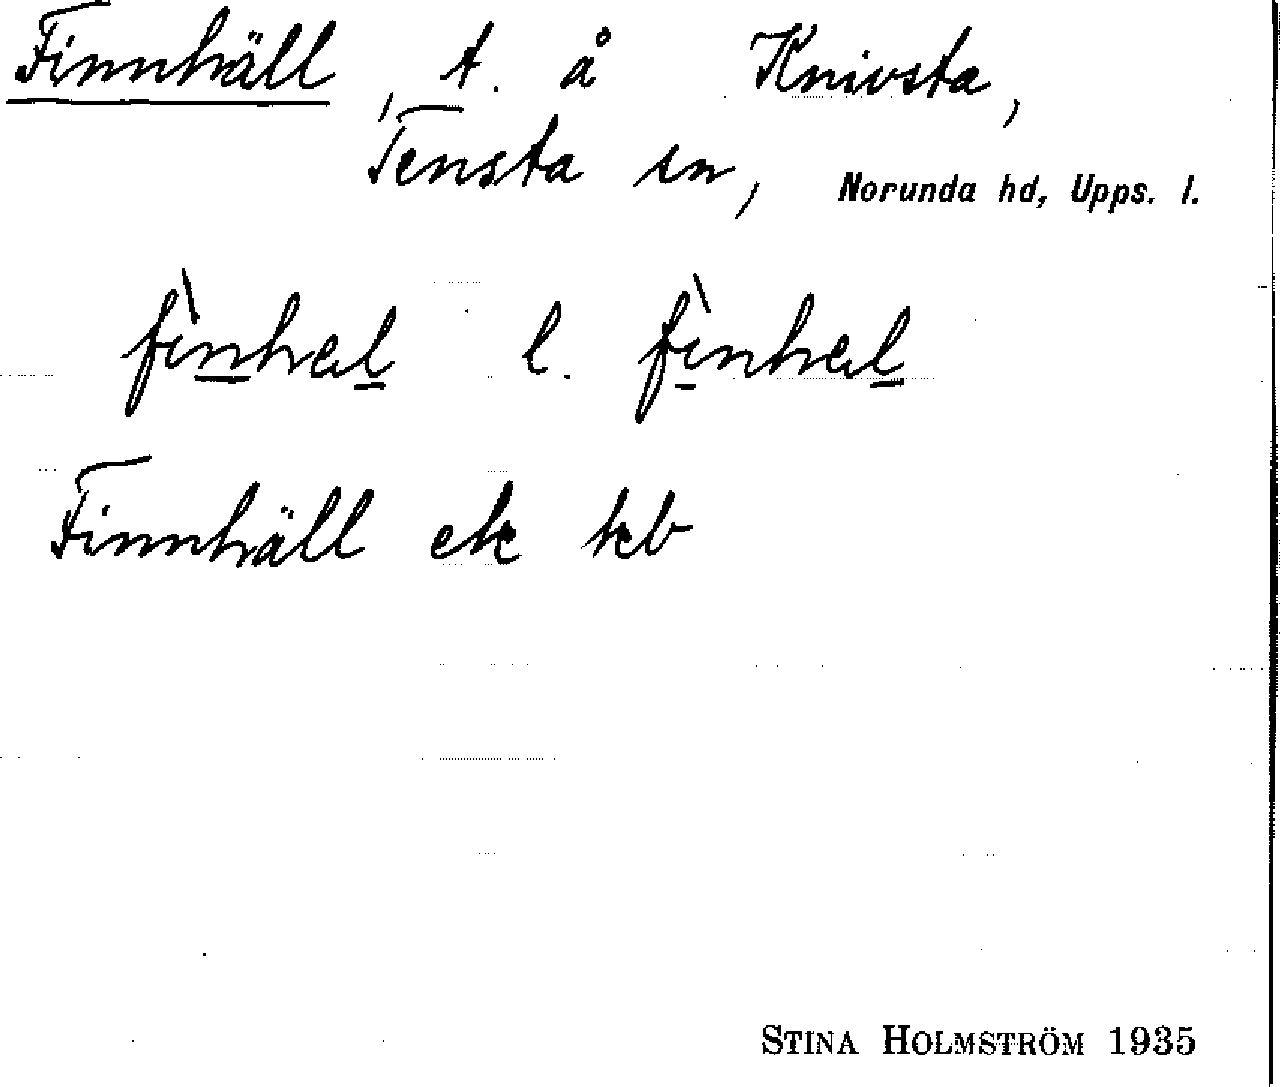 Finnhäll, t. å Knivsta,
Tensta sn, Norunda hd, Upps. l.
fìnhæl l. fìnhæl
Finnhäll ek kb
STINA HOLMSTRÖM 1935